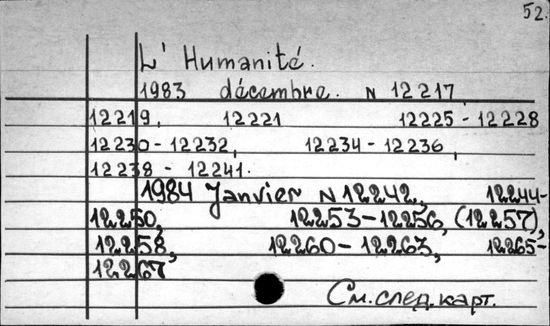 52.
L' Humanité.
1983 décembre. N 12217
12219, 12221 12225-12228
12230-12232, 12234-12236,
12238 - 12241.
1984 Janvier N 12242, 12244-
12250, 12253-12256, (12257),
12258, 12260-12263, 12265-
12267
См. след. карт.